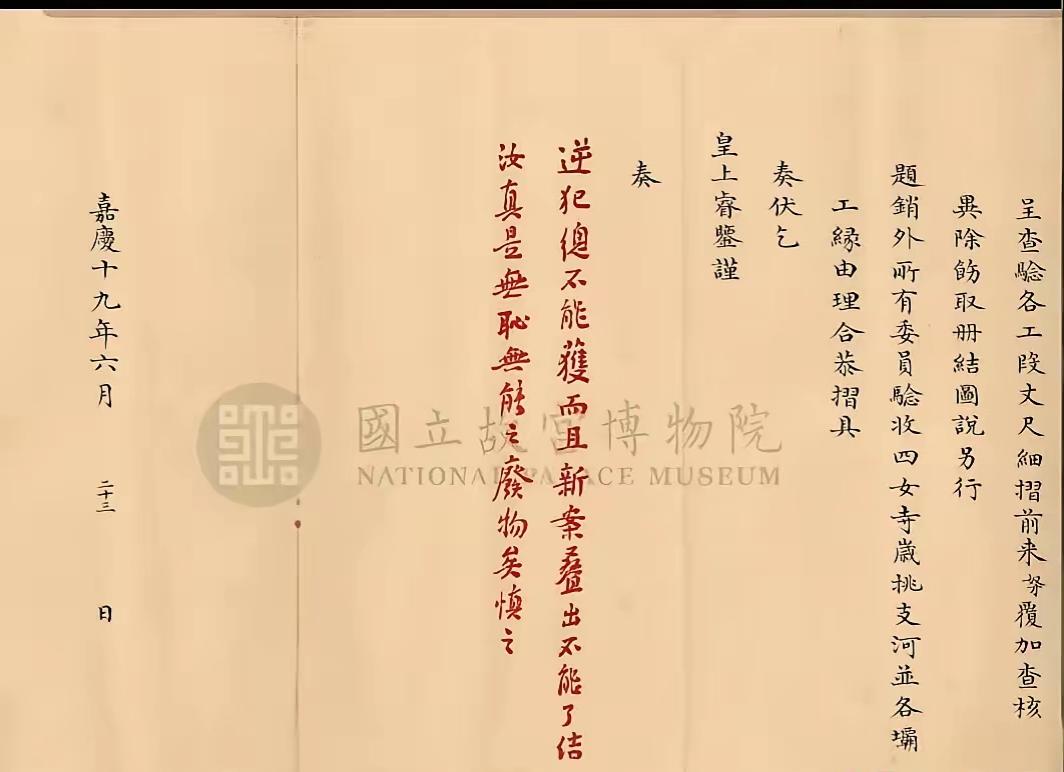 呈查驗各工段丈尺細摺前来孥覆加查核
異除飭取册結圖說另行
題銷外所有委員驗收四女寺歲挑支河並各壩
工緣由理合恭摺具
奏伏乞
皇上睿鑒謹
奏
逆犯總不能獲而且新案叠出不能了结
汝真是無恥無能之廢物矣慎之
嘉慶十九年六月 二十三 日
國立故宮博物院
NATIONAL PALACE MUSEUM